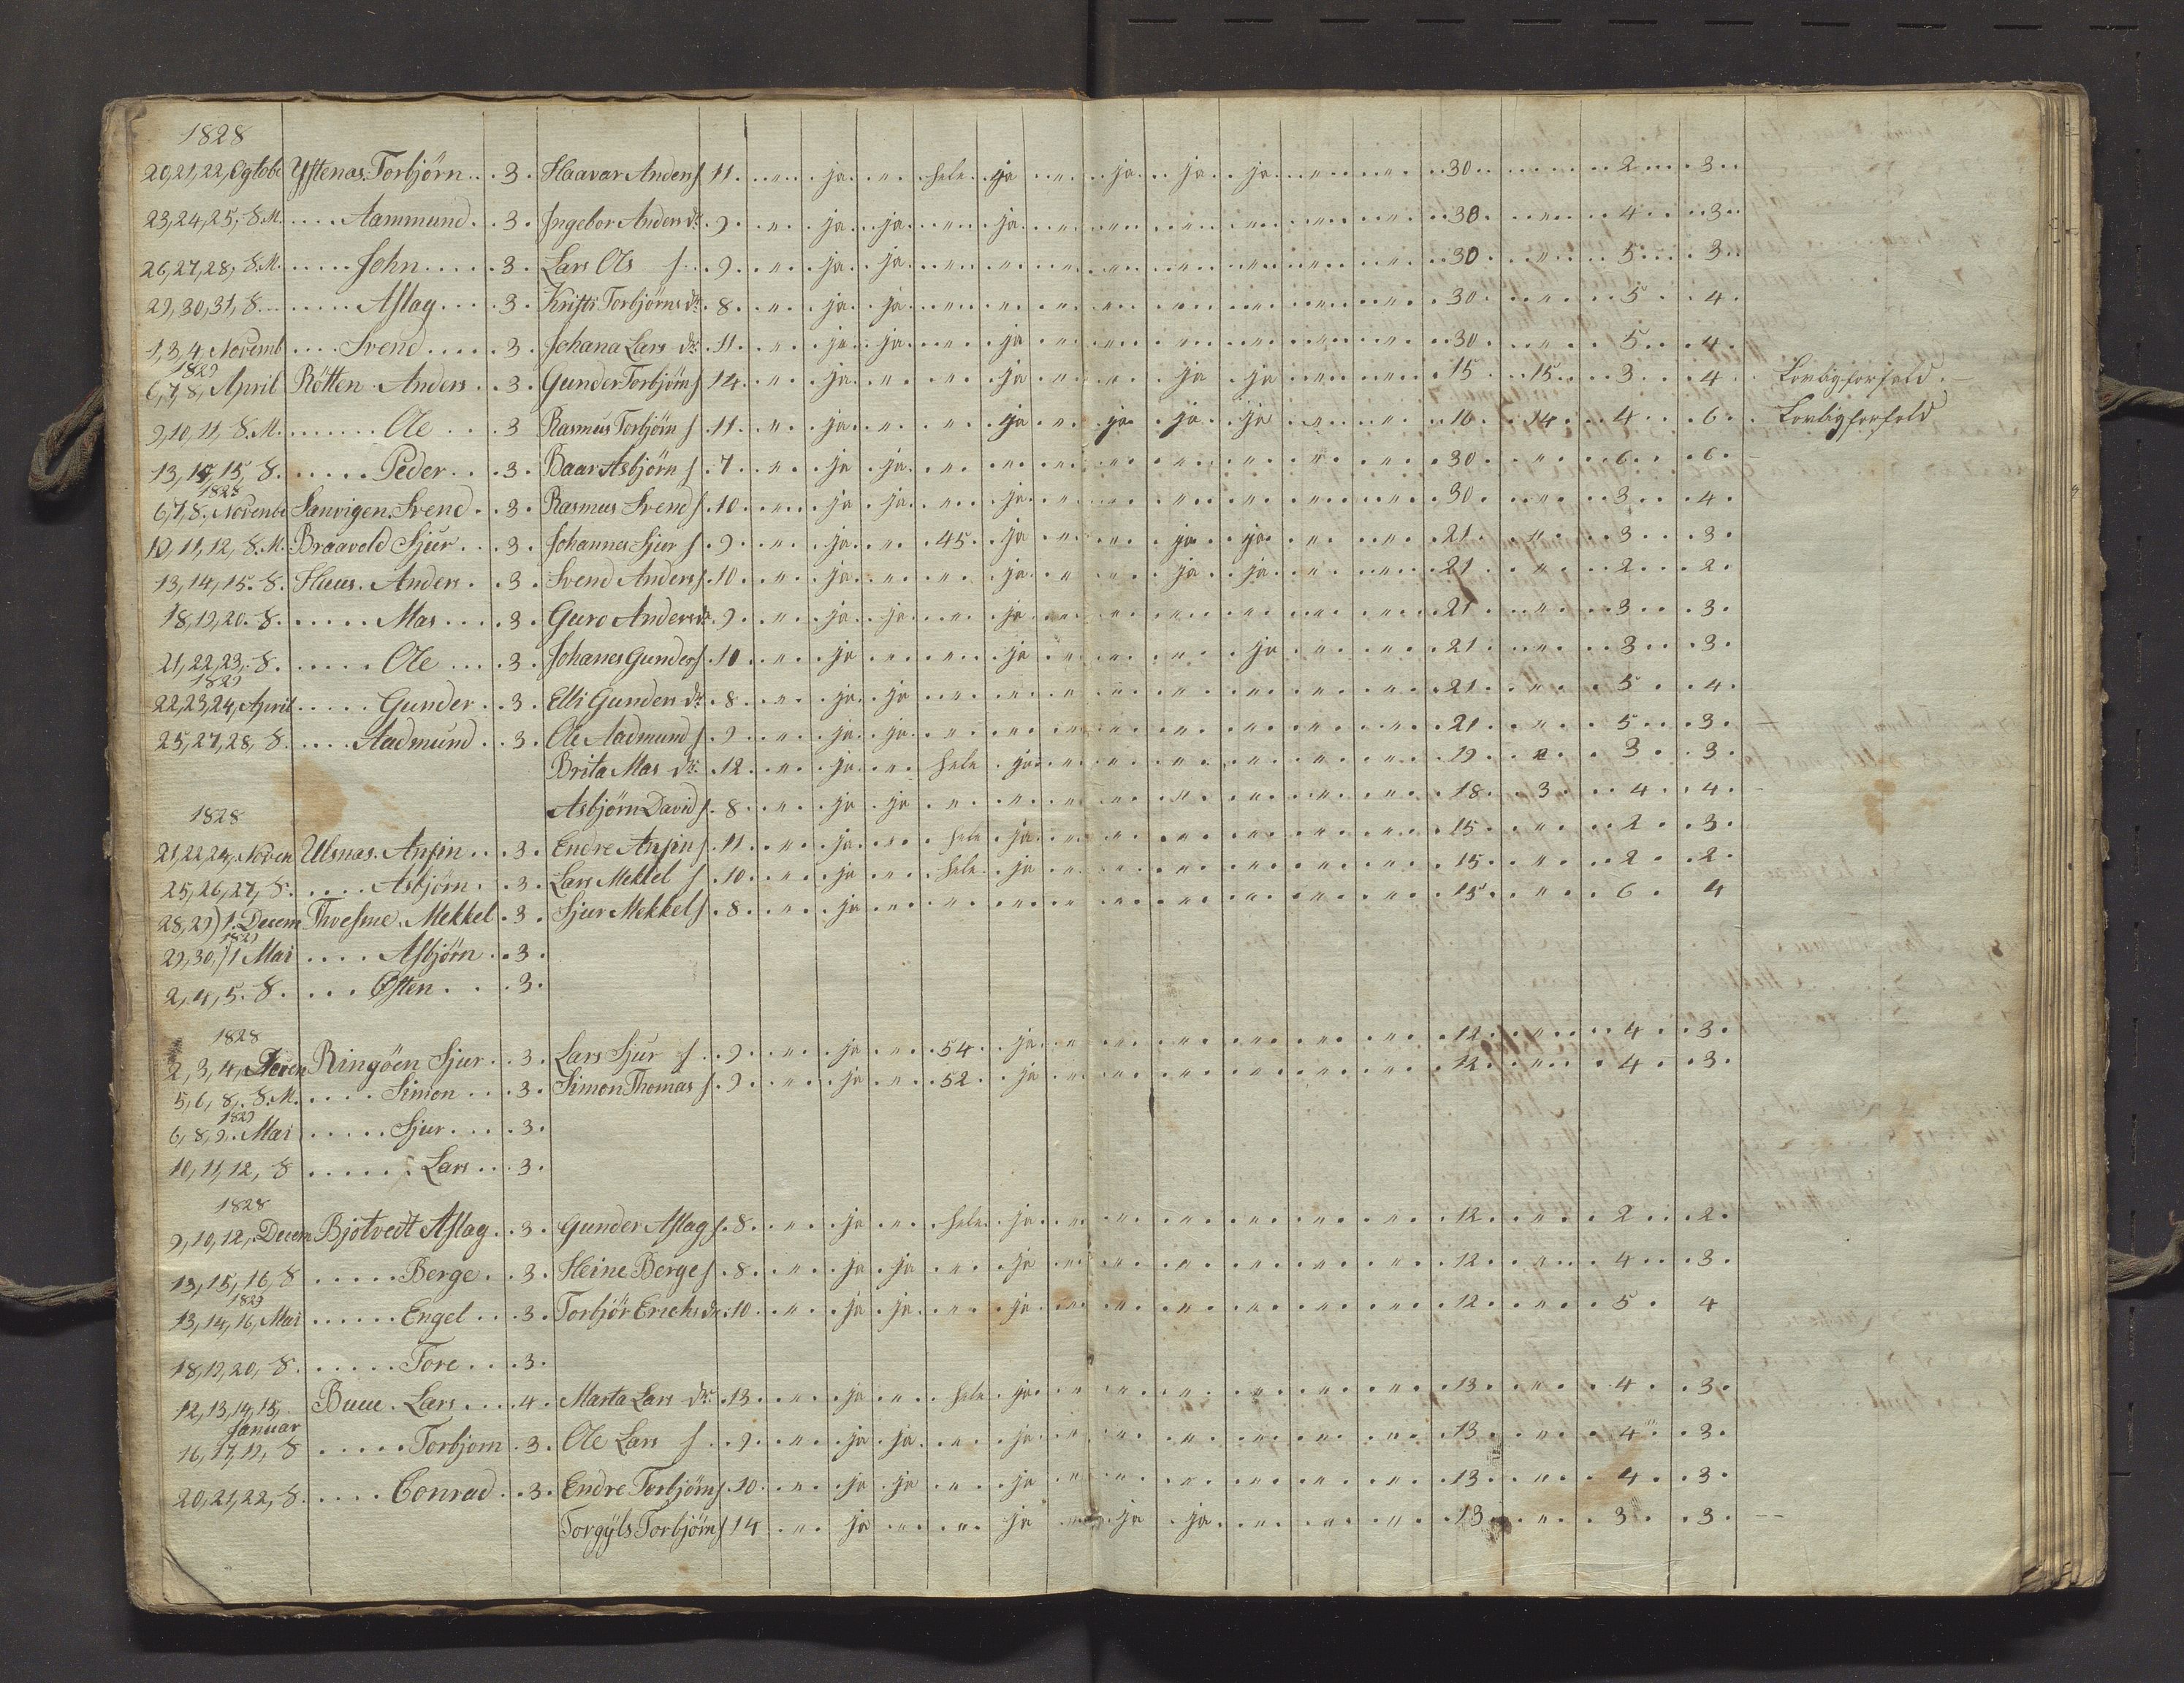 1828
20,21,22, Ogtobe Ystenas. Torbjörn . . 3 . Haavar Anders s 11 . „ . ja . „ . hele . ja . „ . ja . ja . ja . „ . „ . 30 . . 2 . 3 .
23,24,25, 8.M. . . . . Aammund . . 3 . Ingebor Anders dr. 9 . „ . ja . ja . „ . ja . „ . „ . „ . „ . „ . „ . 30 . „ . 4 . 3 .
26,27,28, 8.M. . . . . John . . . . 3 . Lars Ols s . 9 . „ . ja . ja . „ . „ . „ . „ . „ . „ . „ . „ . 30 . „ . 5 . 3 .
29,30,31, 8. . . . . Aslag . . . . 3 . Kristi Torbjörns dr. 8 . „ . ja . ja . „ . „ . „ . „ . „ . „ . „ . „ . 30 . „ . 5 . 4 .
1,3,4, Novemb . . . . Svend . . . . 3 . Johana Lars dr. 11 . „ . ja . ja . „ . ja . „ . „ . „ . „ . „ . „ . 30 . „ . 5 . 4 .
1829
6,7,8, April Rötten . Anders . . 3 . Gunder Torbjörn s 14 . „ . ja . „ . „ . ja . „ . „ . ja . ja . „ . „ . 15 . 15 . 3 . 4 . Lovligforfald . —
9,10,11, 8.M. . . . . Ole . . . 3 Rasmus Torbjörn s . 11 . „ . ja . „ . „ . ja . „ . ja . ja . ja . „ . „ . 16 . 14 . 4 . 6 . Lovligforfald
13,14,15, 8. . . . . Peder . . . 3 . Baar Asbjörn s . 7 . „ . ja . ja . „ . „ . „ . „ . „ . „ . „ . „ . 30 . „ . 6 . 6 .
1828
6,7,8, Novenbe Sanvigen. Svend . . 3 . Rasmus Svend s . 10 . „ . ja . ja . „ . ja . „ . „ . „ . „ . „ . „ . 30 . „ . 3 . 4 .
10,11,12, 8.M. Braavold Sjur . . . 3 . Johannes Sjur s . 9 . „ . ja . „ . 45 . ja . „ . „ . ja . ja . „ . „ . 21 . „ . 3 . 3 .
13,14,15. 8. Huus . Anders . . 3 . Svend Anders s . 10 . „ . ja . „ . „ . ja . „ . „ . ja . ja . „ . „ . 21 . „ . 2 . 2 .
18,19,20. 8. . . . . . Mas . . . . 3 . Guro Anders dr. 9 . „ . ja . ja . „ . ja . „ . „ . „ . „ . „ . „ . 21 . „ . 3 . 3 .
21,22,23, 8. . . . . . Ole . . . . 3 . Johanes Gunder s . 10 . „ . ja . „ . „ . ja . „ . „ . „ . ja . „ . „ . 21 . „ . 3 . 3 .
1829
22,23,24, April . . . . . Gunder . . 3 . Elli Gunders dr. 8 . „ . ja . ja . „ . „ . „ . „ . „ . „ . „ . „ . 21 . „ . 5 . 4 .
25,27,28, 8. . . . . Aadmund . . 3 . Ole Aadmund s . 9 . „ . ja . ja . „ . „ . „ . „ . „ . „ . „ . „ . 21 . „ . 5 . 3 .
Brita Mas dr. 12 . „ . ja . „ . hele . ja . „ . „ . „ . „ . „ . „ . 19 . 2 . 3 . 3 .
Asbjörn David s . 8 . „ . ja . ja . „ . „ . „ . „ . „ . „ . „ . „ . 18 . 3 . 4 . 4 .
1828
21,22,24, Noven Ulsnas. Anfin . . 3 . Endre Anfin s . 11 . „ . ja . „ . hele . ja . „ . „ . „ . „ . „ . „ . 15 . „ . 2 . 3 .
25,26,27, 8. . . . . Asbjörn . . 3 . Lars Mekkel s . 10 . „ . ja . „ . hele . ja . „ . „ . „ . „ . „ . „ . 15 . „ . 2 . 2 .
28,29) 1. Decem Thvesme. Mekkel . 3 . Sjur Mekkel s . 8 . „ . ja . „ . „ . „ . „ . „ . „ . „ . „ . „ . 15 . „ . 6 . 4
1829
29,30,) 1 Mai . . . . Asbjörn . . 3 .
2,4,5. 8. . . . Östen . . . 3 .
1828
2,3,4, Decen Ringöen Sjur . . 3 . Lars Sjur s . 9 . „ . ja . „ . 54 . ja . „ . „ . „ . „ . „ . „ . 12 . „ . 4 . 3 .
5,6,8, 8.M. . . . . Simon . . . 3 . Simon Thomas s . 9 . „ . ja . „ . 52 . ja . „ . „ . „ . „ . „ . „ . 12 . „ . 4 . 3 .
1829
6,8,9. Mai . . . . . Sjur . . . . 3 .
10,11,12, 8 . . . . . Lars . . . 3 .
1828
9,10,12, Decem Bjotvedt Aslag . . 3 . Gunder Aslag s . 8 . „ . ja . „ . hele . ja . „ . „ . „ . „ . „ . „ . 12 . „ . 2 . 2 .
13,15,16, 8 . . . . . Berge . . 3 . Heine Berge s . 8 . „ . ja . ja . „ . ja . „ . „ . „ . „ . „ . „ . 12 . „ . 4 . 3 .
1829
13,14,16, Mai . . . . . . Engel . . . 3 . Torbjör Erichs dr. 10 . „ . ja . ja . „ . ja . „ . „ . „ . „ . „ . „ . 12 . „ . 5 . 4
18,19,20, 8. . . . . . Tore . . . 3 .
12,13,14,15, Buue . Lars . . . . 4 . Marta Lars dr. 13 . „ . ja . „ . hele . ja . „ . „ . „ . „ . „ . „ . 13 . „ . 4 . 3 .
Januar
16,17,19, 8 . . . . . Torbjorn . 3 . Ole Lars s . 9 . „ . ja . ja . „ . ja . „ . „ . „ . „ . „ . „ . 13 . „ . 4 . 3 .
20,21,22, 8. . . . . Conrad . . 3 . Endre Torbjörn s . 10 . „ . ja . ja . „ . ja . „ . „ . „ . „ . „ . „ . 13 . „ . 4 . 3 .
Torgÿls Torbjörn s 14 . „ . ja . „ . „ . ja . „ . ja . ja . „ . „ . „ . 13 . „ . 3 . 3 . — —